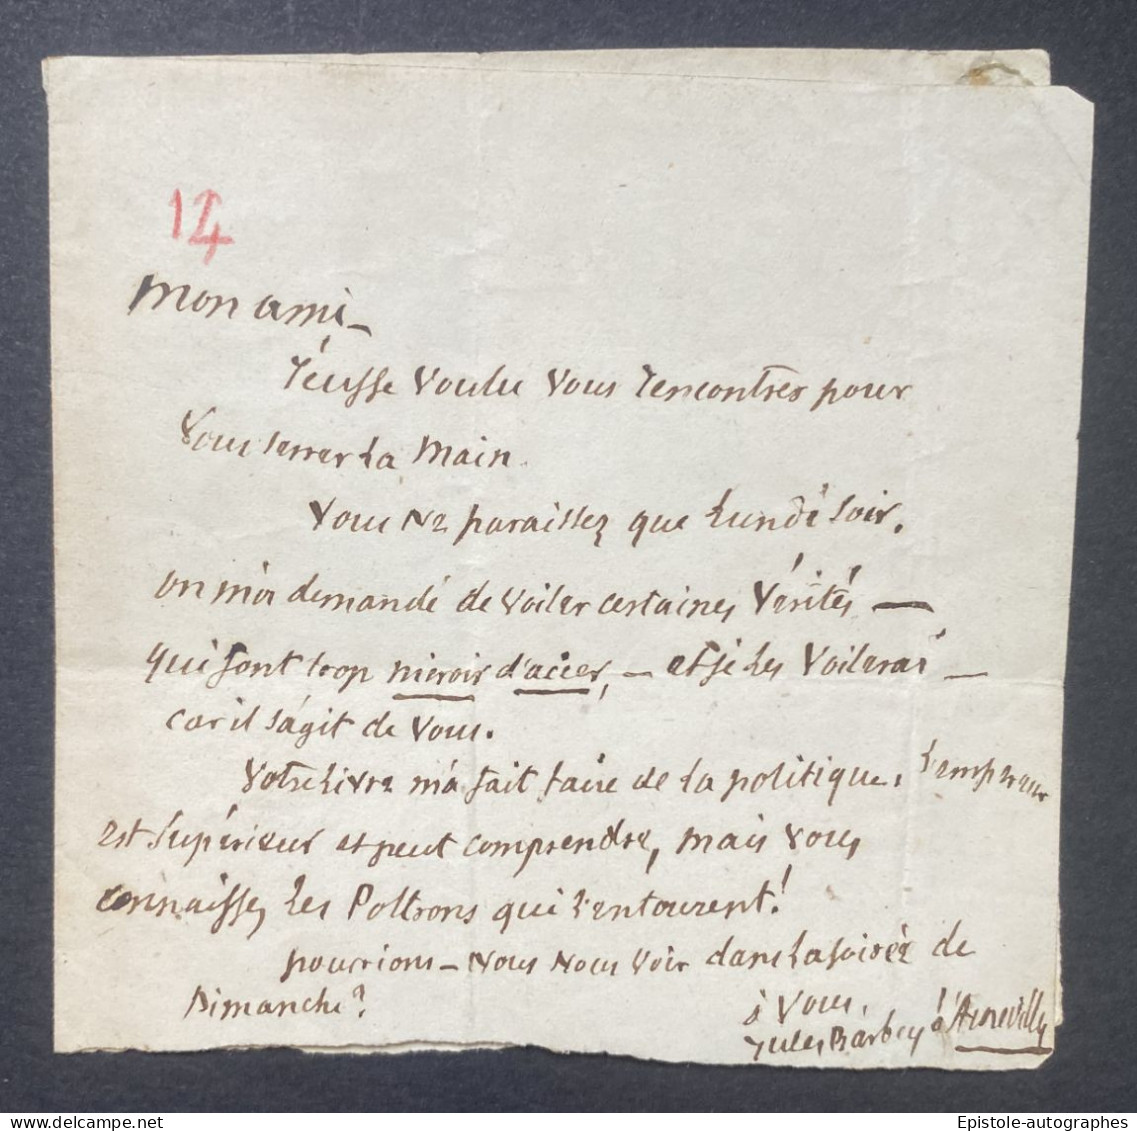 124
Mon ami –
j'eusse voulu vous rencontrer pour
vous serrer la main.
Vous ne paraissez que Lundi soir.
on m'a demandé de voiler certaines vérités —
qui sont trop miroir d'acier, – et je les voilerai –
car il s'agit de vous.
Votre livre m'a fait faire de la politique. L'empereur
est supérieur et peut comprendre, mais vous
connaissez les Poltrons qui l'entourent!
pourrions-nous nous voir dans la soirée de
Dimanche?
à vous,
Jules Barbey d'Aurevilly
delcampe.net
Epistole-autographes